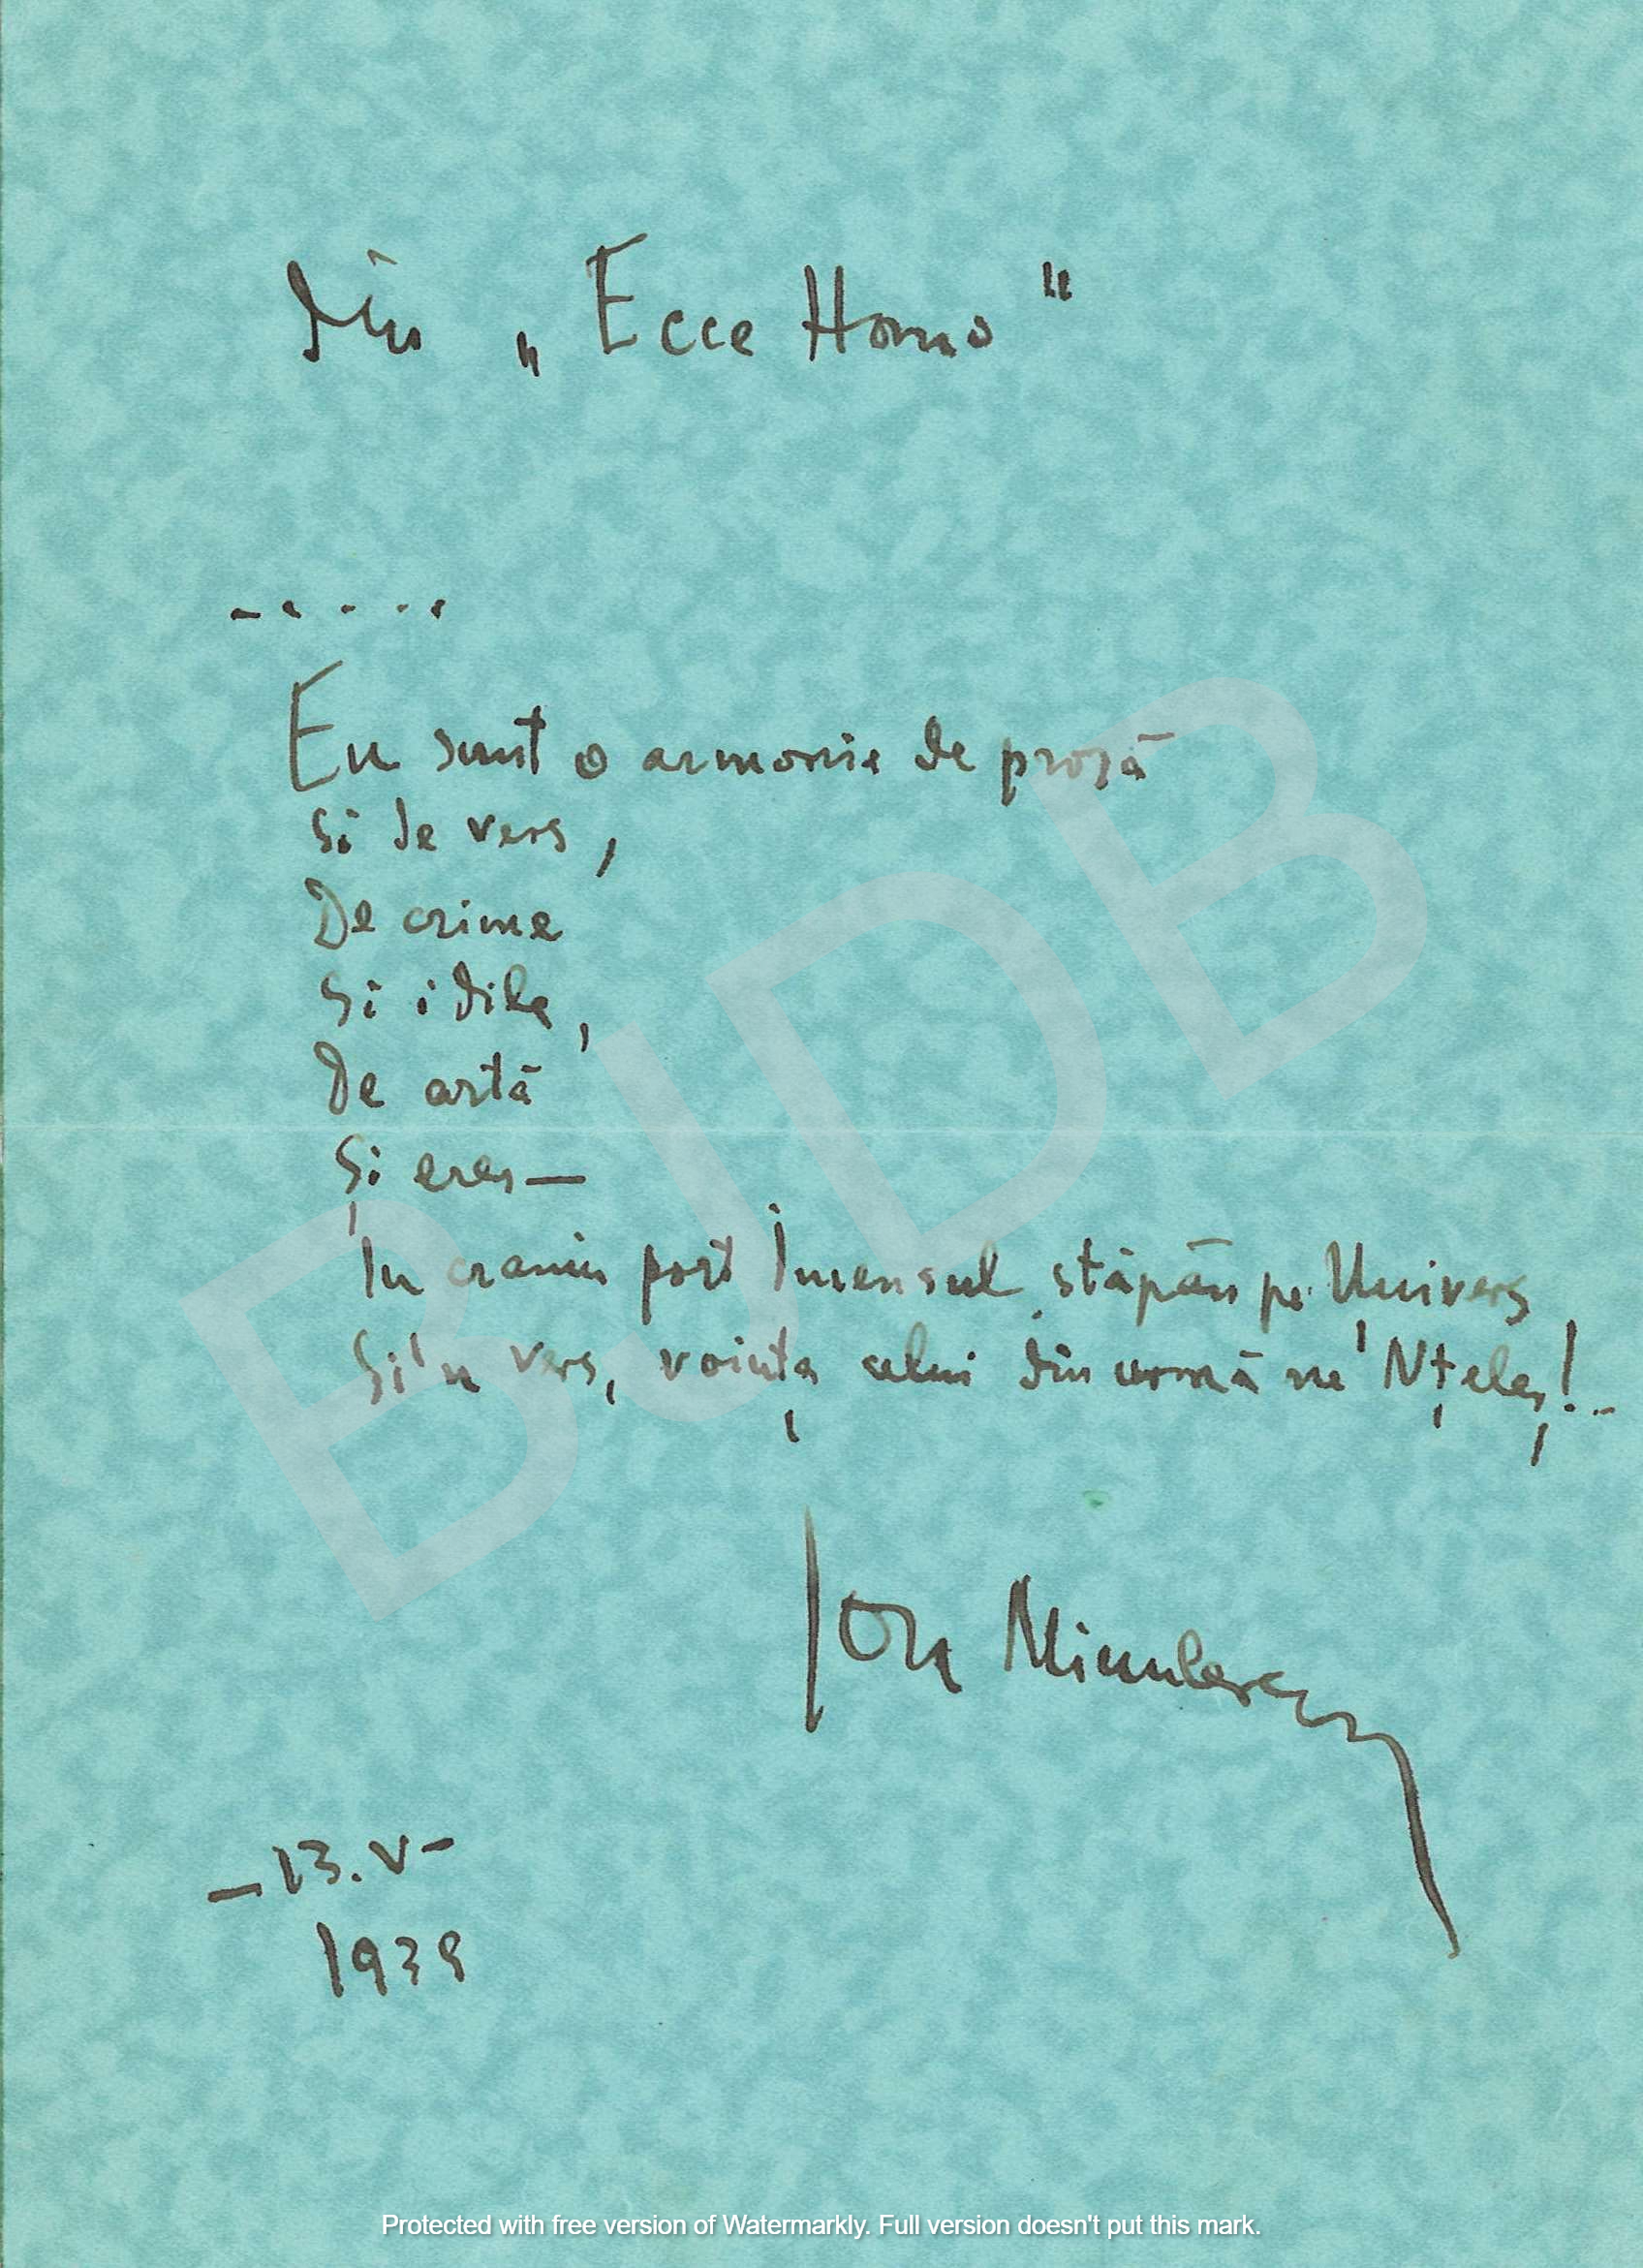 din „Ecce Homo"
.....
Eu sunt o armonie de proză
Si de vers,
De crime
Si idile,
De artă
Și eres—
In craniu port Imensul stăpân pe Univers
Si'n vers, voința celui din urmă ne'Nțeles!..
Ion Minulescu
—13.V—
1939
BJDB
Protected with free version of Watermarkly. Full version doesn't put this mark.